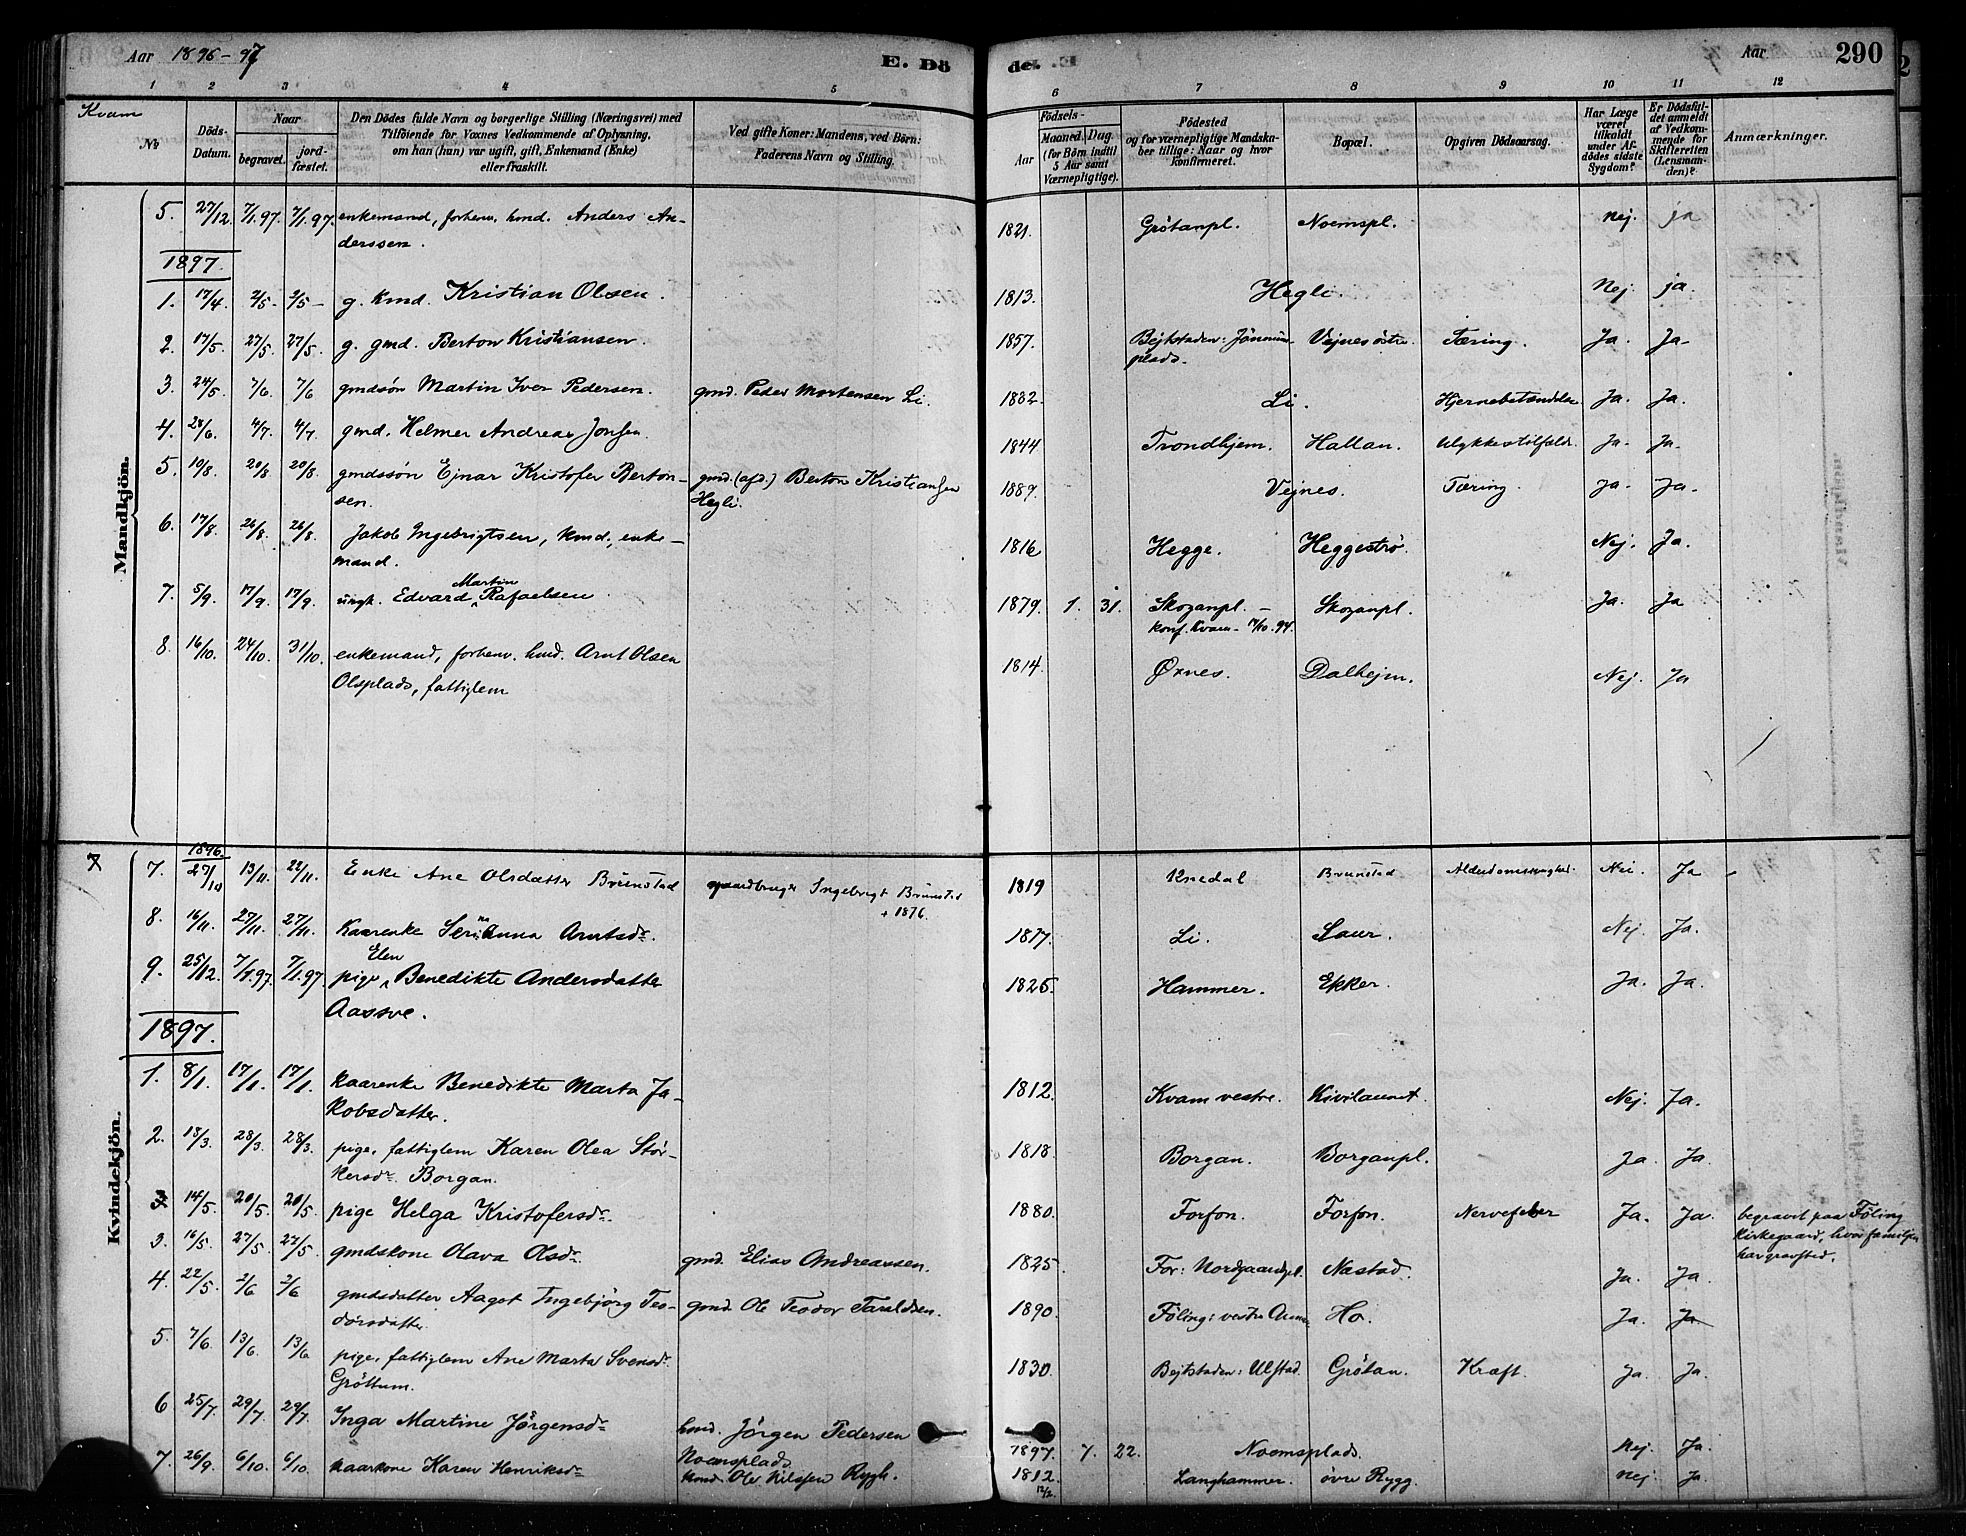 Aar 1896-97
E. Dö
de. E.
Aar
290
1 2 3 4 5 6 7 8 9 10 11 12
Kvam
No
Döds-Datum.
Naar
begravet.
jordfæstet.
Den Dödes fulde Navn og borgerlige Stilling (Næringsvei) med
Tilföiende for Voxnes Vedkommende af Oplysning,
om han (hun) var ugift, gift, Enkemand (Enke)
eller fraskilt.
Ved gifte Koner: Mandens, ved Börn:
Faderens Navn og Stilling.
Födsels-
Aar
Maaned. Dag.
(for Börn indtil
5 Aar samt
Værnepligtige).
Födested
og for værnepligtige Mandskaber tillige: Naar og hvor
konfirmeret.
Bopæl.
Opgiven Dödsaarsag.
Har Læge
været
tilkaldt
under Afdödes sidste
Sygdom?
Er Dödsfuldet anmeldt
af Vedkommende for
Skifteretten
(Lensmanden)?
Anmærkninger.
Mandkjön.
5. 27/12 7/1.97. 7/1.97. enkemand, forhenv. hmd. Anders An-
derssen. 1821. Grötanpl. Noemspl. Nej. ja
1897.
1. 17/4 2/5- 2/5- g. kmd. Kristian Olsen. 1813. Hegli. Nej. ja.
2. 17/5 27/5 27/5 g. gmd. Berton Kristiansen. 1857. Bejtstaden: Vejnes östre. Tæring. Ja. Ja.
plads.
3. 24/5 7/6 7/6 gmdsön Martin Iver Pedersen. gmd. Peder Mortensen Li. 1882. Li. Ja. Ja.
4. 4/7 4/7 gmd. Helmer Andreas Jonsen. 1844. Trondhjem. Hallan. Ulykkestilfæld. Ja. Ja.
5. 10/8 20/8 20/8 gmdssön Ejnar Kristofer Berton-
sen. gmd. (afd.) Berton Kristiansen
Hegli. 1889. Vejnes. Tæring. Ja. Ja.
6. 17/8 26/8 26/8 Jakob Ingebrigtsen, kmd., enke-
mand. 1816 Hegge. Heggestrø. Nej. Ja.
7. 5/9 17/9 17/9 ungk. Edvard Martin Rafaelsen. 1879. 1. 31. Skoganpl. - Skoganpl. Ja. Ja
konf. Kvam
8. 16/10 24/10 31/10 enkemand, forhenv. hmd. Arnt Olsen
Olsplads, fattiglem 1814. Øxnes. Dalhejm. Nej. Ja
Kvindekjön.
1896.
7. 27/10 13/11. 22/11. Enke Ane Olsdatter Brunstad gaardbruger Ingebrigt Brunstad
+ 1876. 1819 Knedal Brunstad Alderdomssvaghed. Nei. Ja
8. 16/11 27/11. 27/11. Kaarenke Serina Anna Arntsdr. 1817. Li. Saur. Nej. Ja.
9. 25/12. 7/1.97. 7/1.97. pige, Elen Benedikte Andersdatter
Aasve. 1825. Hammer. Ekker. Ja. Ja.
1897.
1. 8/1 17/1. 17/1. kaarenke Benedikte Marta Ja-
kobsdatter. 1812. Kvam vestre. Kivilaunet. Nej. Ja.
2. 18/3. 28/3. 28/3. pige, fattiglem Karen Olea Stör-
kersdr. Borgan. 1818. Borgan. Borganpl. Ja. Ja.
14/5 20/5 20/5 pige Helga Kristofersdr. 1880. Forfon. Forfon. Nervefeber Ja. Ja. begravet paa Föling
kirkegaard, hvor familjen
har gravsted.
3. 16/5 27/5 27/5 gmdskone Olava Olsdr. gmd. Elias Andreassen. 1825. For: Nordgaardspl. Nastad. Ja. Ja.
4. 22/5. 2/6 2/6 gmdsdatter Aagot Ingebjörg Teo-
dorsdatter. gmd. Ole Teodor Taraldsen. 1890. Föling: vestre Ho. Ja. Ja.
5. 7/6. 13/6. 13/6 pige, fattiglem Ane Marta Svensdr.
Gröttum. 1830. Bejtstaden: Ulstad. Grötan. Kræft. Ja. Ja.
6 25/7. 29/7. 29/7. Inga Martine Jörgensdr hmd. Jörgen Pedersen
Noemsplads 1897. 7. 22. Noemsplads. Nej. Ja.
7. 26/9. 6/10. 6/10. kaarkone Karen Henriksdr kmd. Ole Nilssen Rygh. 1812. 12/2. Langhammer. övre Rygg. Nej. Ja.